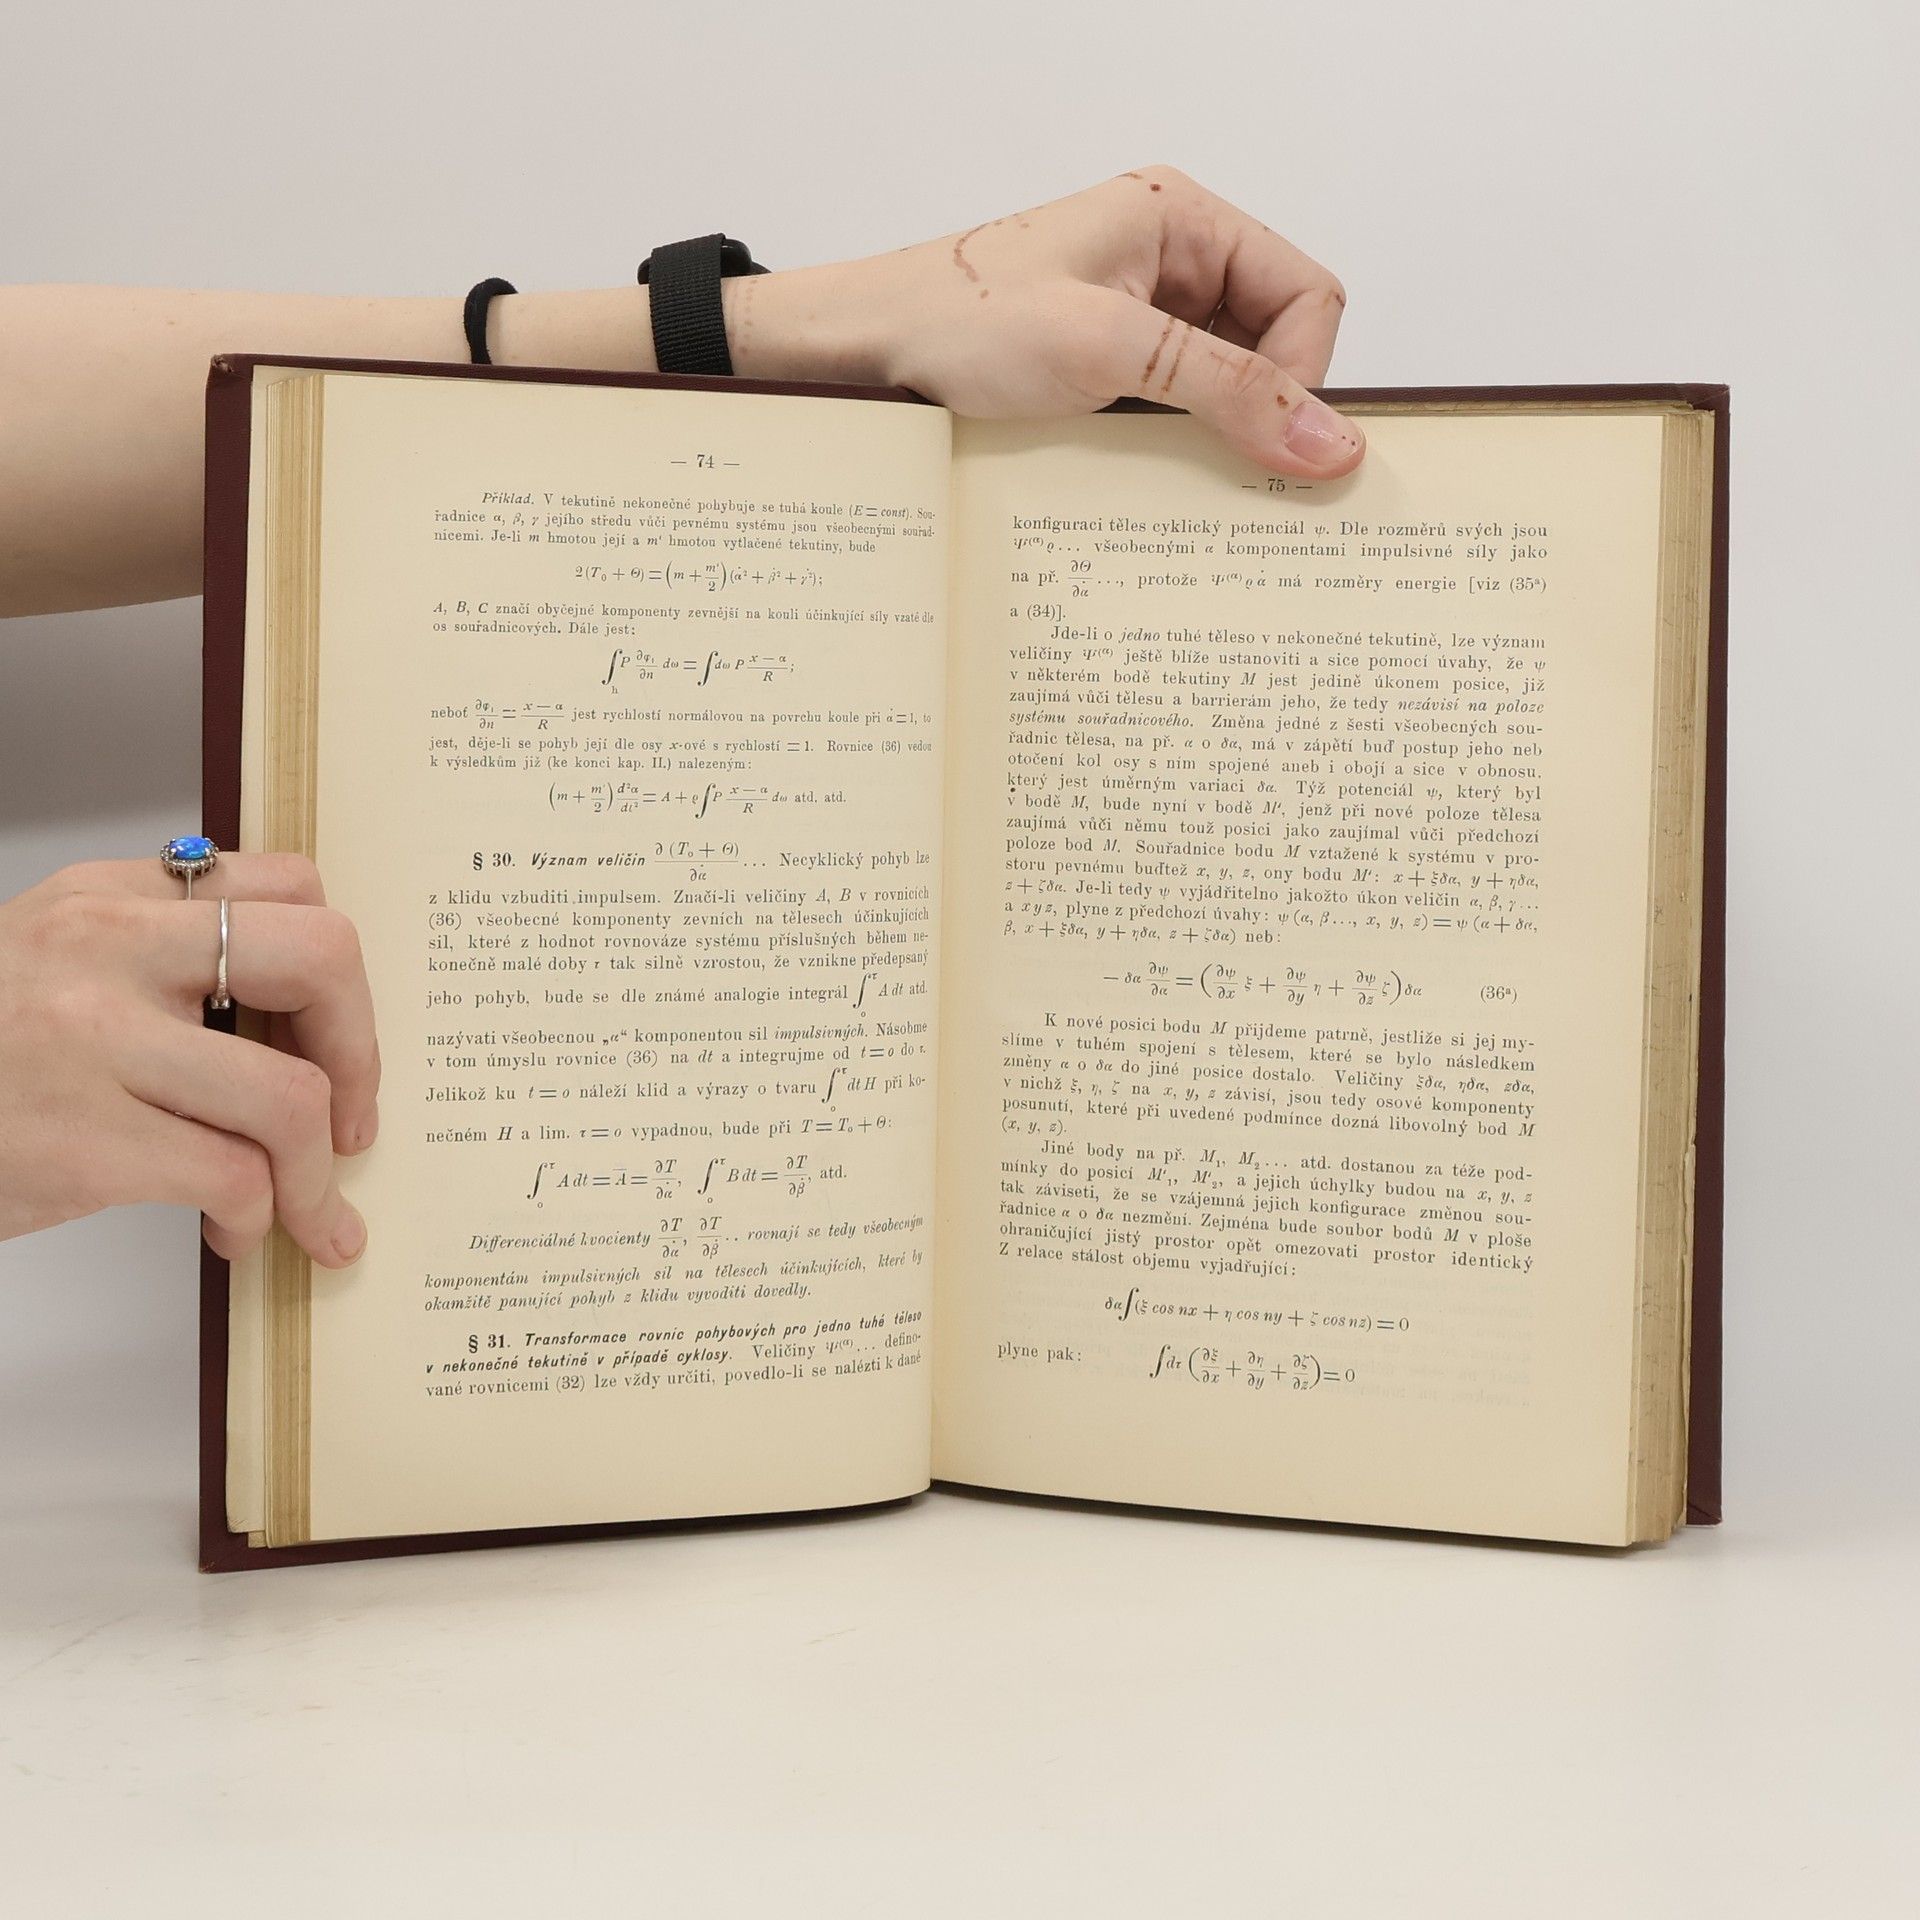 — 74 —
Příklad. V tekutině nekonečné pohybuje se tuhá koule (E = const). Sou-
řadnice α, β, γ jejího středu vůči pevnému systému jsou všeobecnými souřad-
nicemi. Je-li m hmotou její a m' hmotou vytlačené tekutiny, bude
2 (T₀ + Θ) = (m + m'/2) (α̇² + β̇² + γ̇²);
A, B, C značí obyčejné komponenty zevnější na kouli účinkující síly vzaté dle
os souřadnicových. Dále jest:
∫ₕ P ∂φ₁/∂n dω = ∫ dω P (x — α)/R;
neboť ∂φ₁/∂n = (x — α)/R jest rychlostí normálovou na povrchu koule při α̇ = 1, to
jest, děje-li se pohyb její dle osy x-ové s rychlostí = 1. Rovnice (36) vedou
k výsledkům již (ke konci kap. II.) nalezeným:
(m + m'/2) d²α/dt² = A + ϱ ∫ P (x — α)/R dω atd. atd.
§ 30. Význam veličin ∂ (T₀ + Θ)/∂α̇ ... Necyklický pohyb lze
z klidu vzbuditi impulsem. Značí-li veličiny A, B v rovnicích
(36) všeobecné komponenty zevních na tělesech účinkujících
sil, které z hodnot rovnováze systému příslušných během ne-
konečně malé doby τ tak silně vzrostou, že vznikne předepsaný
jeho pohyb, bude se dle známé analogie integrál ∫₀^τ A dt atd.
nazývati všeobecnou „α“ komponentou sil impulsivných. Násobme
v tom úmyslu rovnice (36) na dt a integrujme od t = o do τ.
Jelikož ku t = o náleží klid a výrazy o tvaru ∫₀^τ dt H při ko-
nečném H a lim. τ = o vypadnou, bude při T = T₀ + Θ:
∫₀^τ A dt = A̅ = ∂T/∂α̇, ∫₀^τ B dt = ∂T/∂β̇, atd.
Differenciálné kvocienty ∂T/∂α̇, ∂T/∂β̇ .. rovnají se tedy všeobecným
komponentám impulsivných sil na tělesech účinkujících, které by
okamžitě panující pohyb z klidu vyvoditi dovedly.
§ 31. Transformace rovnic pohybových pro jedno tuhé těleso
v nekonečné tekutině v případě cyklosy. Veličiny Ψ⁽ᵅ⁾... defino-
vané rovnicemi (32) lze vždy určiti, povedlo-li se nalézti k dané
— 75 —
konfiguraci těles cyklický potenciál ψ. Dle rozměrů svých jsou
Ψ⁽ᵅ⁾ϱ... všeobecnými α komponentami impulsivné síly jako
na př. ∂Θ/∂α̇ ..., protože Ψ⁽ᵅ⁾ϱα̇ má rozměry energie [viz (35ᵃ)
a (34)].
Jde-li o jedno tuhé těleso v nekonečné tekutině, lze význam
veličiny Ψ⁽ᵅ⁾ ještě blíže ustanoviti a sice pomocí úvahy, že ψ
v některém bodě tekutiny M jest jedině úkonem posice, již
zaujímá vůči tělesu a barrierám jeho, že tedy nezávisí na poloze
systému souřadnicového. Změna jedné z šesti všeobecných sou-
řadnic tělesa, na př. α o δα, má v zápětí buď postup jeho neb
otočení kol osy s ním spojené aneb i obojí a sice v obnosu,
který jest úměrným variaci δα. Týž potenciál ψ, který byl
v bodě M, bude nyní v bodě M', jenž při nové poloze tělesa
zaujímá vůči němu touž posici jako zaujímal vůči předchozí
poloze bod M. Souřadnice bodu M vztažené k systému v pro-
storu pevnému buďtež x, y, z, ony bodu M': x + ξδα, y + ηδα,
z + ζδα. Je-li tedy ψ vyjádřitelno jakožto úkon veličin α, β, γ...
a x y z, plyne z předchozí úvahy: ψ (α, β..., x, y, z) = ψ (α + δα,
β, x + ξδα, y + ηδα, z + ζδα) neb:
— δα ∂ψ/∂α = (∂ψ/∂x ξ + ∂ψ/∂y η + ∂ψ/∂z ζ) δα (36ᵃ)
K nové posici bodu M přijdeme patrně, jestliže si jej my-
slíme v tuhém spojení s tělesem, které se bylo následkem
změny α o δα do jiné posice dostalo. Veličiny ξδα, ηδα, zδα,
v nichž ξ, η, ζ na x, y, z závisí, jsou tedy osové komponenty
posunutí, které při uvedené podmínce dozná libovolný bod M
(x, y, z).
Jiné body na př. M₁, M₂ ... atd. dostanou za téže pod-
mínky do posicí M'₁, M'₂, a jejich úchylky budou na x, y, z
tak záviseti, že se vzájemná jejich konfigurace změnou sou-
řadnice α o δα nezmění. Zejména bude soubor bodů M v ploše
ohraničující jistý prostor opět omezovati prostor identický
Z relace stálost objemu vyjadřující:
δα ∫ (ξ cos nx + η cos ny + ζ cos nz) = 0
plyne pak: ∫ dτ (∂ξ/∂x + ∂η/∂y + ∂ζ/∂z) = 0